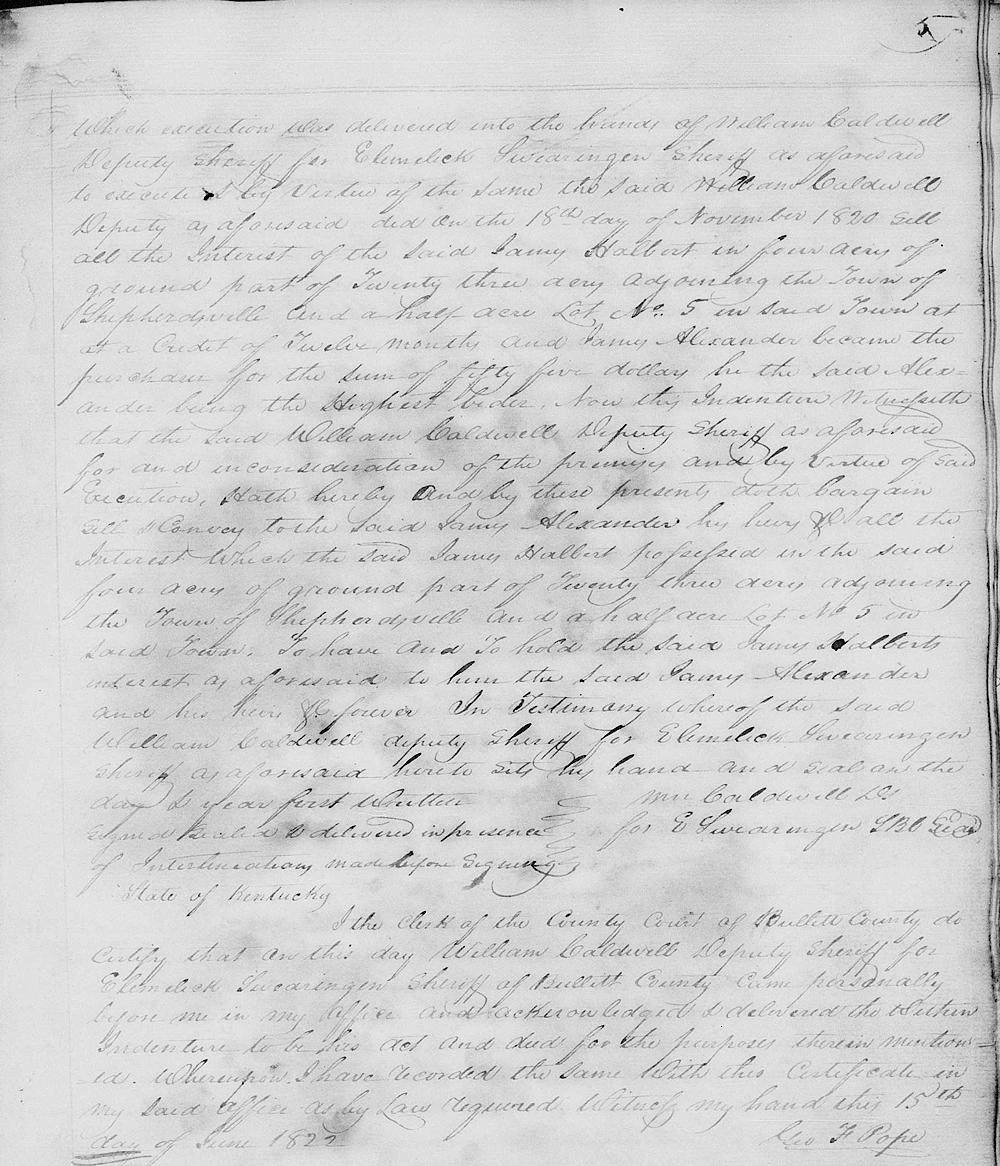 5
Which execution was delivered into the hands of William Caldwell
Deputy Sheriff for Elemelick Swearingen Sheriff as aforesaid
to execute & by Virtue of the same the said William Caldwell
Deputy as aforesaid did on the 18th day of November 1820 Sell
all the Interest of the said James Halbert in four acres of
ground part of Twenty three acres adjoining the Town of
Shepherdsville and a half acre Lot No. 5 in said Town at
at a Credit of Twelve months and James Alexander became the
purchaser for the sum of fifty five dollars he the said Alex=
ander being the Highest bider. Now this Indenture Witnesseth
that the said William Caldwell Deputy Sheriff as aforesaid
for and inconsideration of the premises and by Virtue of said
Execution, Hath hereby and by these presents doth bargain
Sell & Convey to the said James Alexander his heirs &c all the
Interest Which the said James Halbert possessed in the said
four acres of ground part of Twenty three acres adjoining
the Town of Shepherdsville and a half acre Lot No 5 in
said Town. To have and To hold the said James Halberts
interest as aforesaid to him the said James Alexander
and his heirs &c forever In Testimony whereof the said
William Caldwell deputy Sheriff for Elemelick Swearingen
Sheriff as aforesaid hereto sets his hand and seal on the
day & year first Written
Wm Caldwell DS
Signed Sealed & delivered in presence
for E Swearingen SBC Seal
of Interlineations made before Signing
State of Kentucky
I the clerk of the County Court of Bullett County do
Certify that on this day William Caldwell Deputy Sheriff for
Elemelick Swearingen Sheriff of Bullett County Came personally
before me in my office and acknowledged & delivered the Within
Indenture to be his act and deed for the purposes therein mention=
=ed. Whereupon I have recorded the same With this Certificate in
my said office as by Law required Witness my hand this 15th
day of June 1822
Geo F Pope